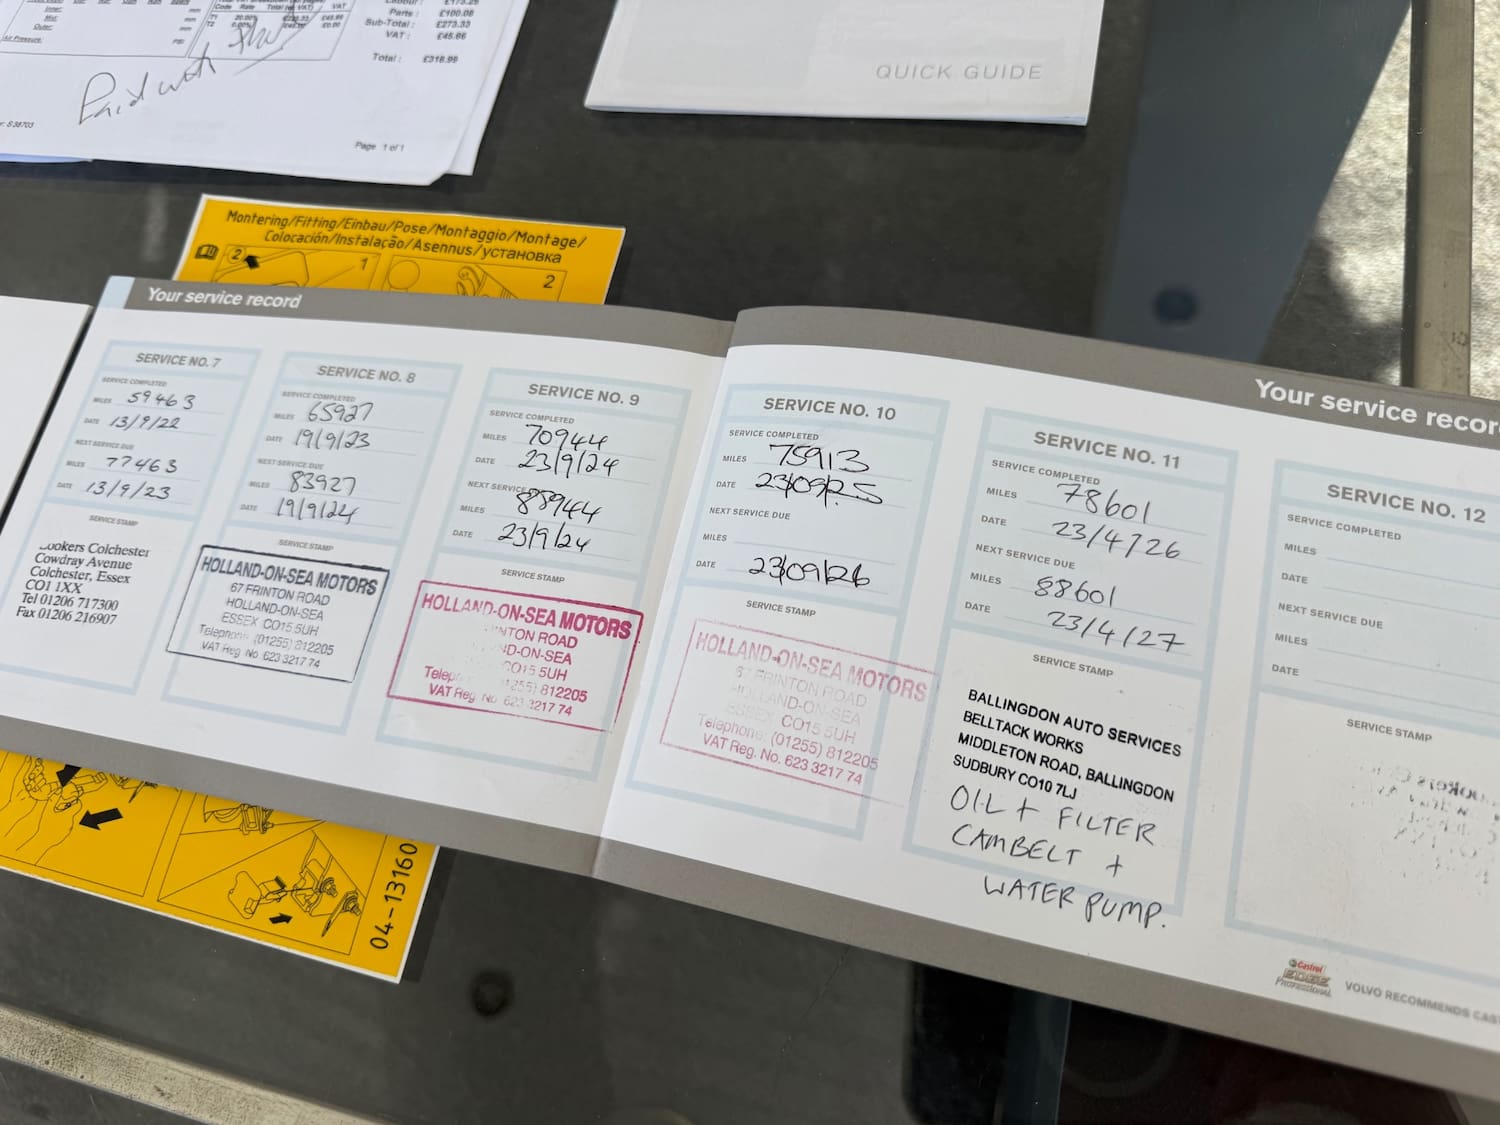 Code Rate Total VAT
T1 20.00% £45.66
T2 0.00% £0.00
Inner: mm
Mid: mm
Outer: mm
Air Pressure: PSI
Labour: £173.25
Parts: £100.08
Sub-Total: £273.33
VAT: £45.66
Total: £318.99
Paid with
Page 1 of 1
QUICK GUIDE
Montering/Fitting/Einbau/Pose/Montaggio/Montage/
Colocación/Instalação/Asennus/установка
2 1 2
04-13160
Your service record
SERVICE NO. 7
SERVICE COMPLETED
MILES 59463
DATE 13/9/22
NEXT SERVICE DUE
MILES 77463
DATE 13/9/23
SERVICE STAMP
Lookers Colchester
Cowdray Avenue
Colchester, Essex
CO1 1XX
Tel 01206 717300
Fax 01206 216907
SERVICE NO. 8
SERVICE COMPLETED
MILES 65927
DATE 19/9/23
NEXT SERVICE DUE
MILES 83927
DATE 19/9/24
SERVICE STAMP
HOLLAND-ON-SEA MOTORS
67 FRINTON ROAD
HOLLAND-ON-SEA
ESSEX CO15 5UH
Telephone: (01255) 812205
VAT Reg. No. 623 3217 74
SERVICE NO. 9
SERVICE COMPLETED
MILES 70944
DATE 23/9/24
NEXT SERVICE DUE
MILES 88944
DATE 23/9/24
SERVICE STAMP
HOLLAND-ON-SEA MOTORS
INTON ROAD
ND-ON-SEA
CO15 5UH
Telep 1255) 812205
VAT Reg. No. 623 3217 74
SERVICE NO. 10
SERVICE COMPLETED
MILES 75913
DATE 23/09/25
NEXT SERVICE DUE
MILES
DATE 23/09/26
SERVICE STAMP
HOLLAND-ON-SEA MOTORS
67 FRINTON ROAD
HOLLAND-ON-SEA
ESSEX CO15 5UH
Telephone: (01255) 812205
VAT Reg. No. 623 3217 74
Your service recor
SERVICE NO. 11
SERVICE COMPLETED
MILES 78601
DATE 23/4/26
NEXT SERVICE DUE
MILES 88601
DATE 23/4/27
SERVICE STAMP
BALLINGDON AUTO SERVICES
BELLTACK WORKS
MIDDLETON ROAD, BALLINGDON
SUDBURY CO10 7LJ
OIL + FILTER
CAMBELT +
WATER PUMP.
SERVICE NO. 12
SERVICE COMPLETED
MILES
DATE
NEXT SERVICE DUE
MILES
DATE
SERVICE STAMP
Castrol
EDGE
Professional
VOLVO RECOMMENDS CAST